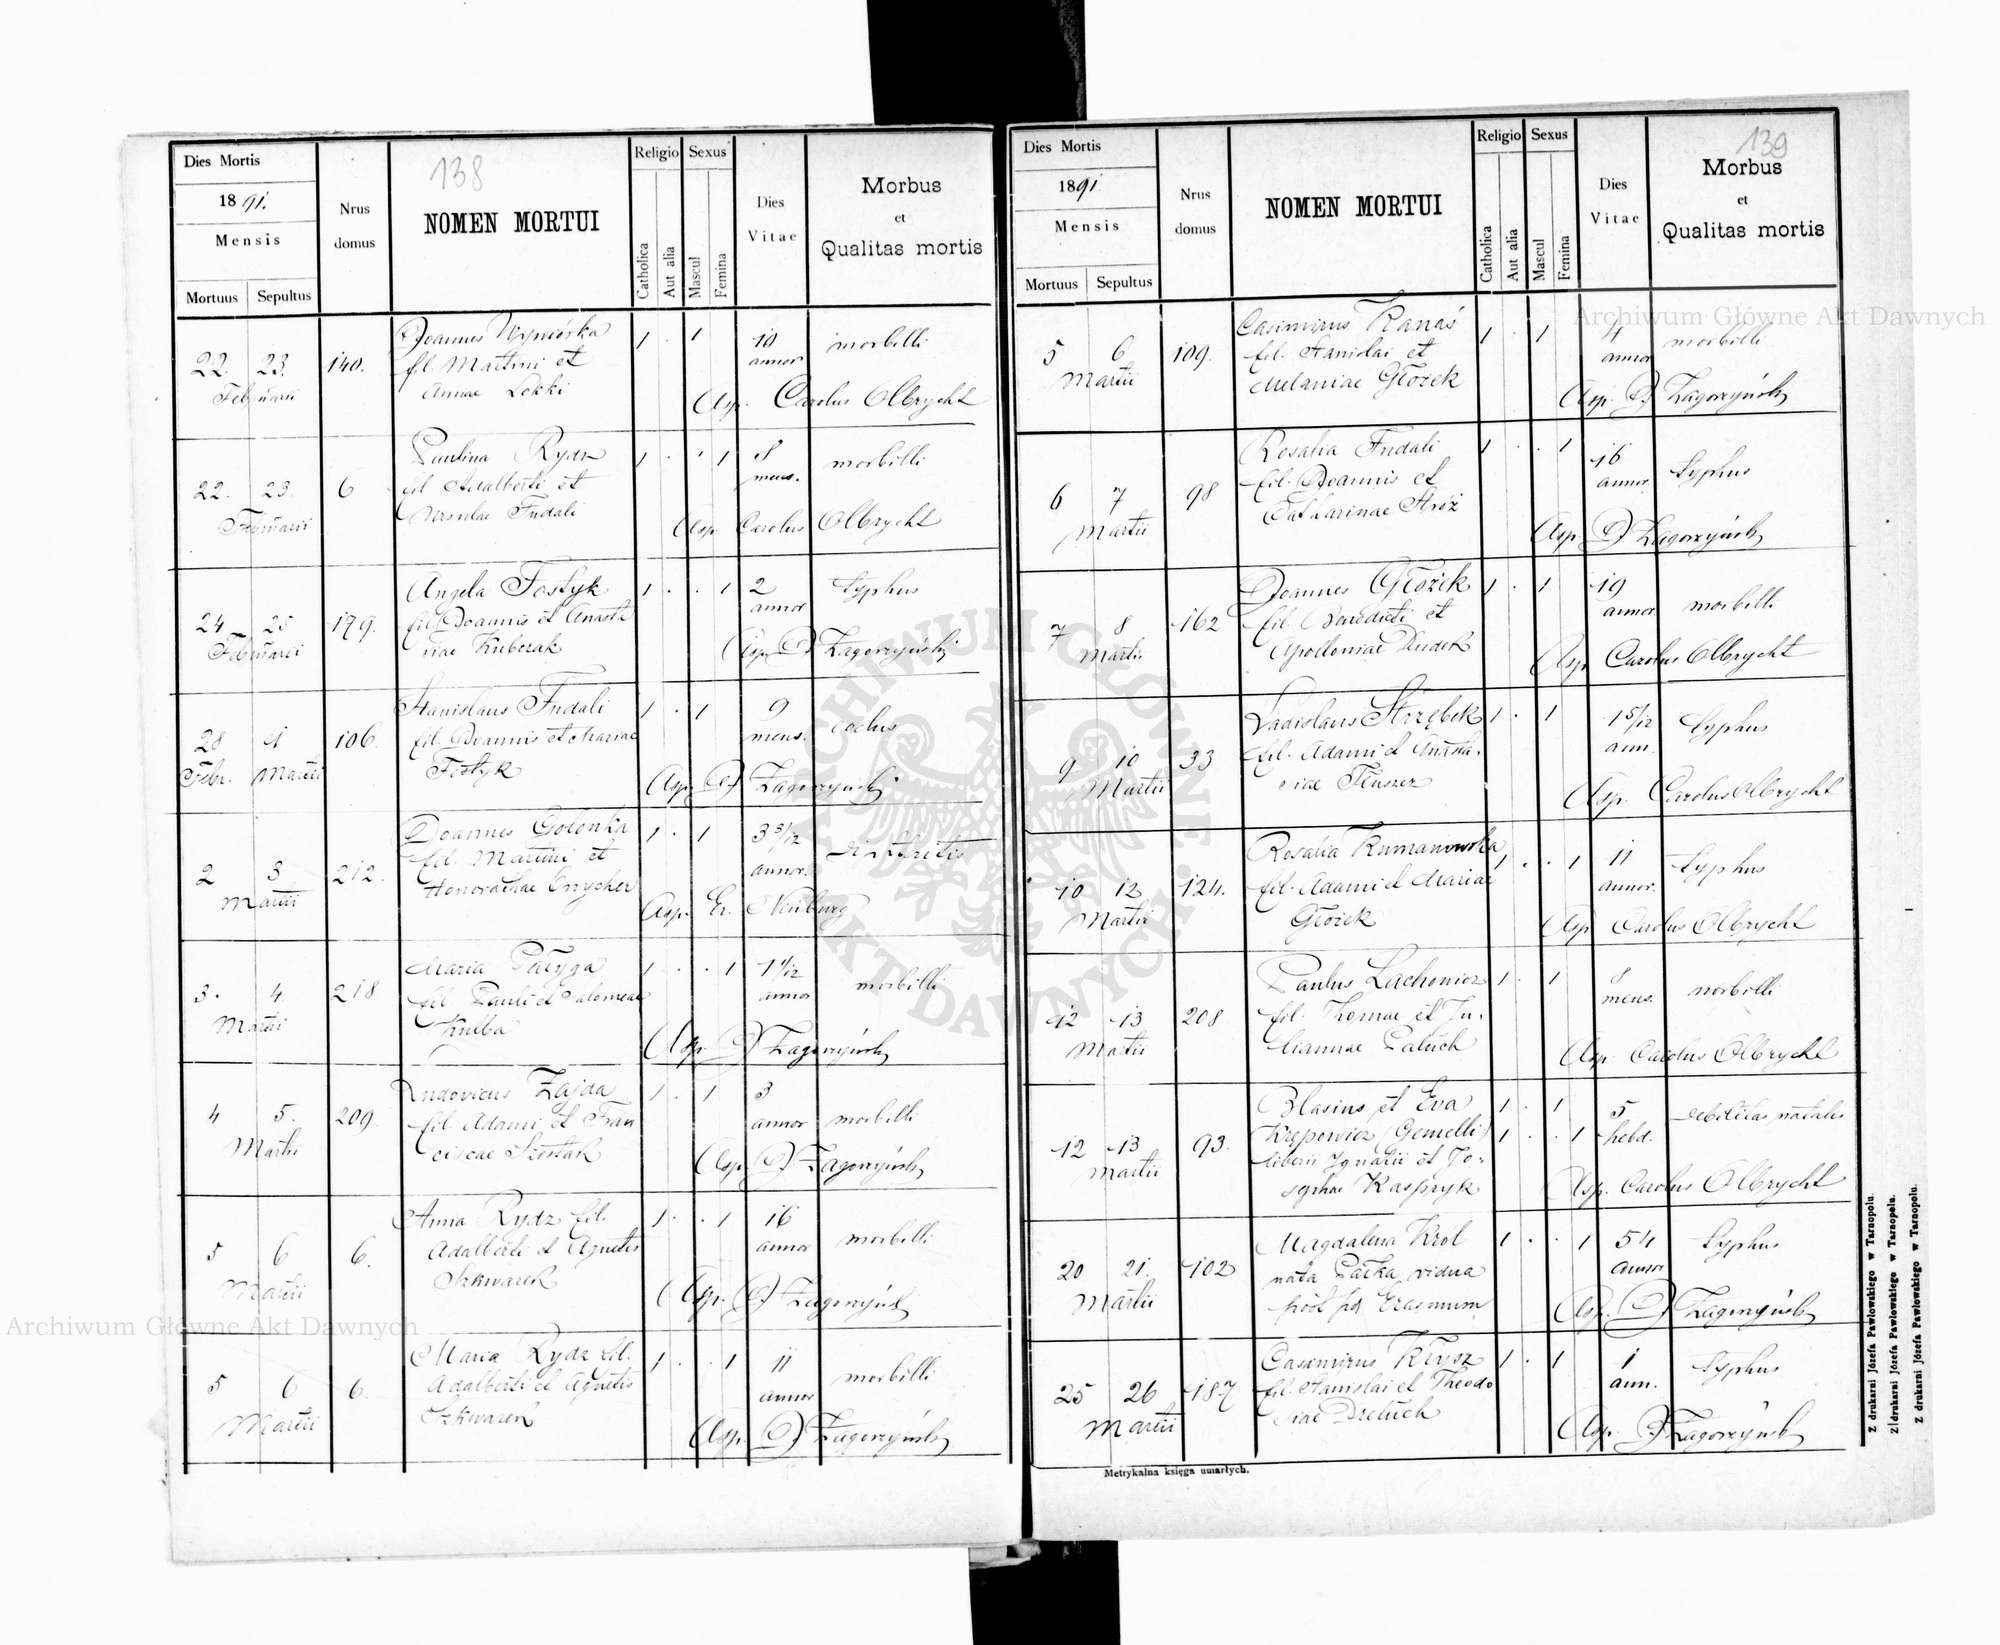 138
Dies Mortis
1891.
Mensis
Mortuus Sepultus
Nrus domus
NOMEN MORTUI
Religio
Catholica
Aut alia
Sexus
Mascul
Femina
Dies Vitae
Morbus
et
Qualitas mortis
22. 23. 140. Joannes 1 . 1 10 morbilli
Februarii fil. Martini et annor
Annae
Asp. Carolus Olbrycht
22. 23. 6 Paulina Rydz 1 . . 1 8 morbilli
Februarii fil Adalberti et mens.
Ursulae Fudali
Asp Carolus Olbrycht
24 25 179. Angela Fostyk 1 . . 1 2 typhus
Februarii fil Joannis et Anasta annor
siae Kubczak
Asp. J Zagorzyński
28 1 106. Stanislaus Fudali 1 . 1 9
Febr. Martii fil. Joannis et Mariae mens.
Fostyk
Asp J Zagorzyński
2 3 212. Joannes Golonka 1 . 1 3 3/12
Martii fil. Martini et annor.
Asp. Er. Neuburg
3. 4. 218 Maria Pałyga 1 . . 1 morbilli
Martii fil. Pauli et Salomeae annor
Kulba
Asp. J Zagorzyński
4 5. 209. Ludovicus Zajda 1 . 1 3 morbilli
Martii fil Adami et Fran annor
ciscae Szostak
Asp. J Zagorzyński
5 6 6. Anna Rydz fil. 1 . . 1 16 morbilli
Martii Adalberti et Agnetis annor
Szkwarek
Asp. J Zagorzyński
5 6 6. Maria Rydz fil. 1 . . 1 11 morbilli
Martii Adalberti et Agnetis annor
Szkwarek
Asp. J Zagorzyński
139
Dies Mortis
1891
Mensis
Mortuus Sepultus
Nrus domus
NOMEN MORTUI
Religio
Catholica
Aut alia
Sexus
Mascul
Femina
Dies Vitae
Morbus
et
Qualitas mortis
5 6 109. Casimirus Kanaś 1 . 1 4 morbilli
Martii fil. Stanislai et annor
Melaniae Głożek
Asp. J Zagorzyński
6 7 98 Rosalia Fudali 1 . . 1 16 typhus
Martii fil. Joannis et annor.
Catharinae Stróż
Asp. J Zagorzyński
7 8 162 Joannes Głożek 1 . 1 19 morbilli
Martii fil. Benedicti et annor
Apolloniae Dudek
Asp Carolus Olbrycht
9 10 33 Ladislaus Strzębek 1 . 1 1 5/12 typhus
Martii fil. Adami et Anasta- ann.
siae Tłuszcz
Asp. Carolus Olbrycht
10 12 124. Rosalia Kumanowska 1 . . 1 11 typhus
Martii fil. Adami et Mariae annor.
Głożek
Asp Carolus Olbrycht
12 13 208 Paulus Lachowicz 1 . 1 8 morbilli
Martii fil. Thomae et Ju- mens.
liannae Paluch
Asp. Carolus Olbrycht
12 13 93. Blasius et Eva 1 . 1 5 debilitas natalis
Martii Krępowicz (Gemelli) 1 . . 1 hebd.
liberi Ignatii et Jo-
sephae Kasprzyk
Asp. Carolus Olbrycht
20 21. 102 Magdalena Król 1 . . 1 54 typhus
Martii nata Pałka, vidua annor
post pd Erasmum
Asp. J Zagorzyński
25 26 187 Casimirus Krysz 1 . 1 1 typhus
Martii fil. Stanislai et Theodo ann.
siae Dretuch
Asp. J Zagorzyński
Metrykalna księga umarłych.
Z drukarni Józefa Pawłowskiego w Tarnopolu.
Z drukarni Józefa Pawłowskiego w Tarnopolu.
Z drukarni Józefa Pawłowskiego w Tarnopolu.
Archiwum Główne Akt Dawnych
Archiwum Główne Akt Dawnych
ARCHIWUM GŁÓWNE AKT DAWNYCH